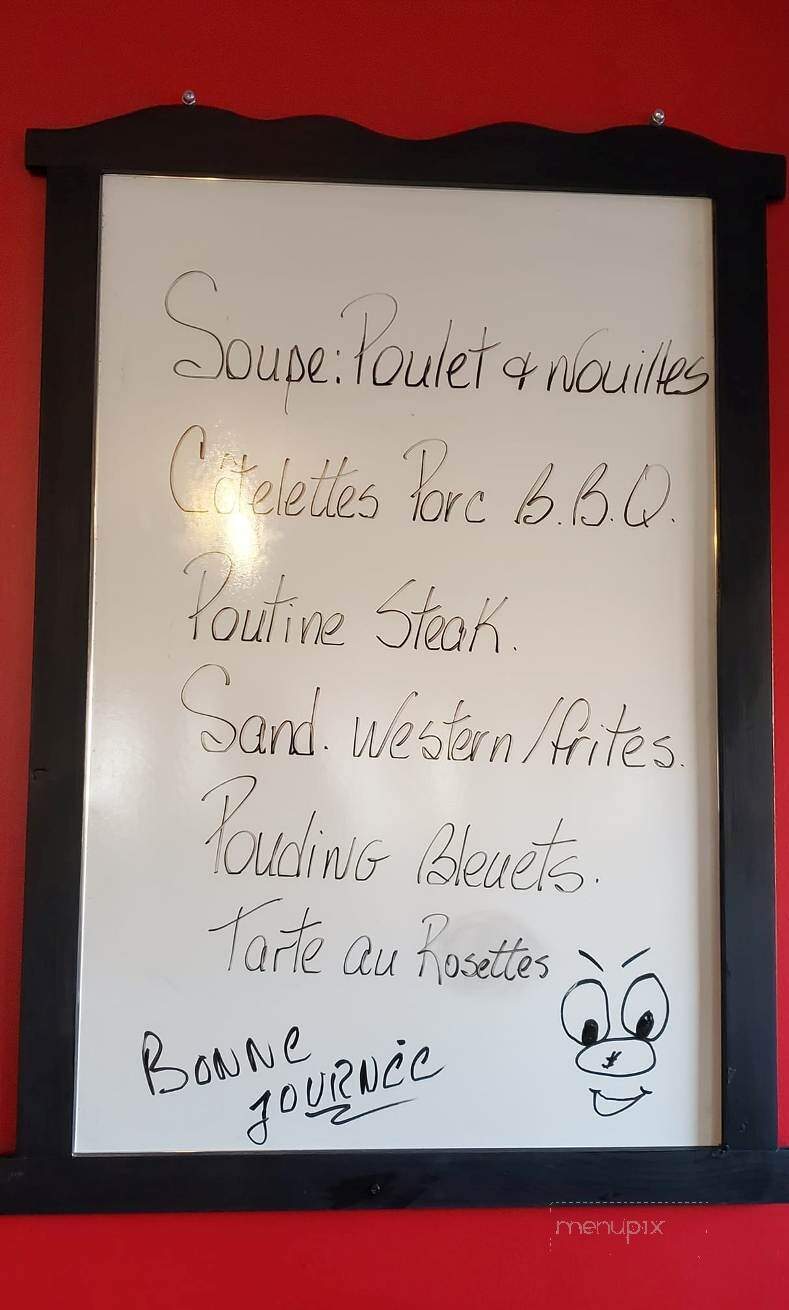 Soupe: Poulet & Nouilles
Côtelettes Porc B.B.Q.
Poutine Steak.
Sand. Western/frites.
Pouding Bleuets.
Tarte au Rosettes
BONNE
JOURNÉE
menupix